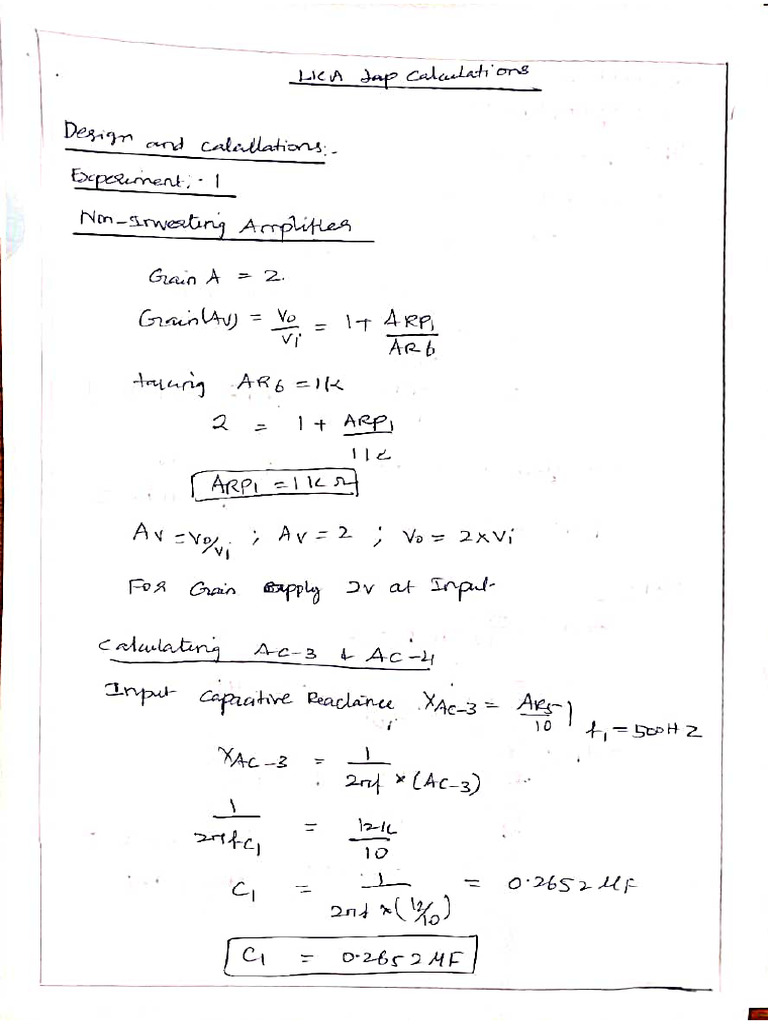 LICA Lap Calculations
Design and calcullations:-
Experiment:- 1
Non-Inverting Amplifier
Gain A = 2.
Gain(Av) = Vo/Vi = 1+ ARP1/AR6
taking AR6 = 1k
2 = 1 + ARP1/1k
ARP1 = 1k Ω
Av = Vo/Vi ; Av = 2 ; Vo = 2xVi
For Gain supply 2v at Input
Calculating AC-3 & AC-4
Input Capacitive Reactance XAC-3 = AR5/10 f1 = 500HZ
XAC-3 = 1/2πf x (AC-3)
1/2πfC1 = 12k/10
C1 = 1/2πf x (12/10) = 0.2652 MF
C1 = 0.2652 MF